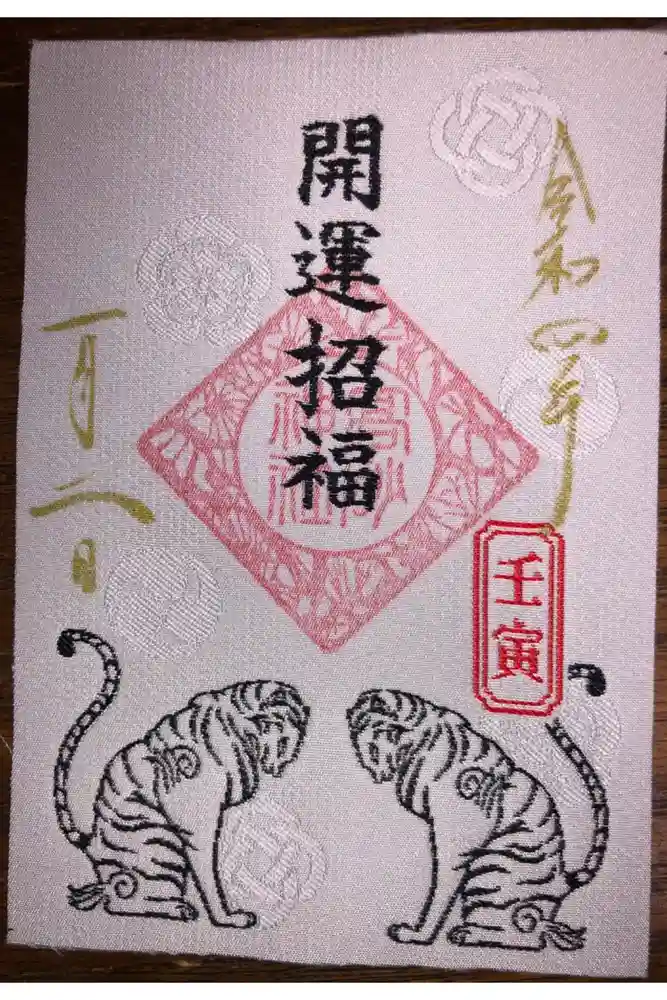 令和四年
壬寅
開運招福
高山
神社
一月二日